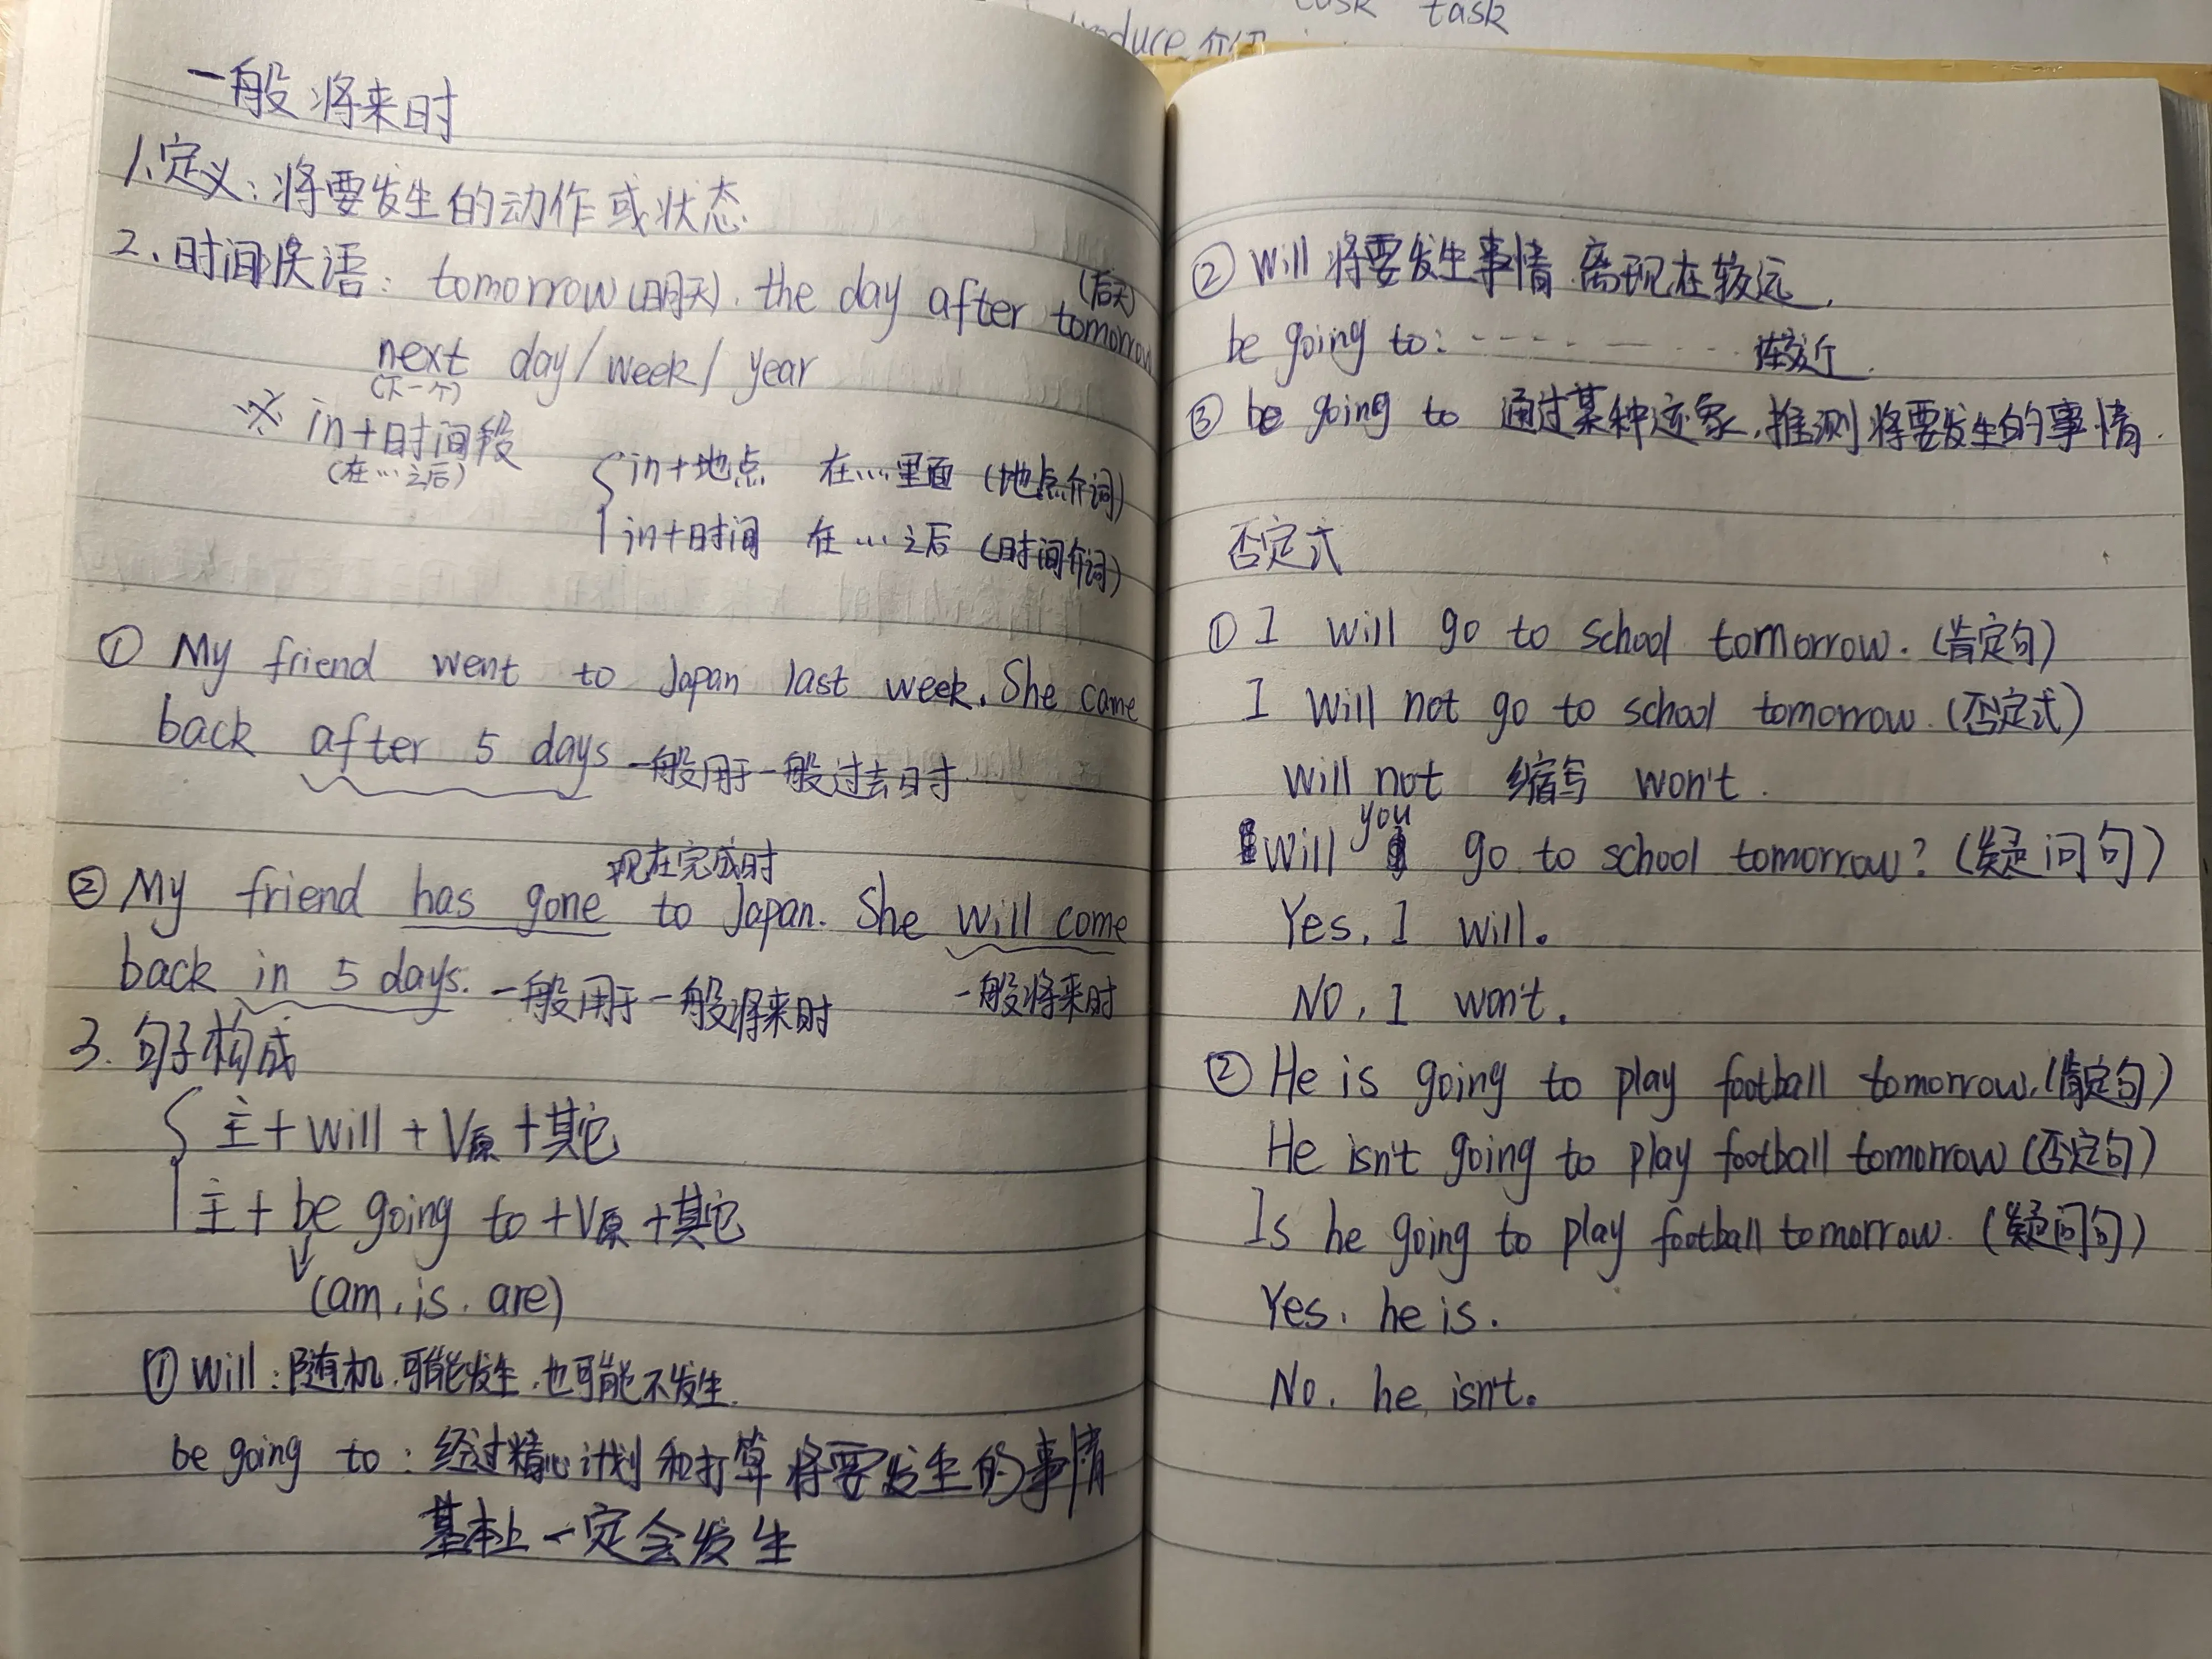 task
一般将来时
1、定义：将要发生的动作或状态
2、时间状语：tomorrow(明天). the day after tomorrow (后天)
next day/week/year
(下一个)
※ in+时间段
(在…之后)
in+地点 在…里面 (地点介词)
in+时间 在…之后 (时间介词)
① My friend went to Japan last week. She came
back after 5 days 一般用于一般过去时
现在完成时
② My friend has gone to Japan. She will come
back in 5 days. 一般用于一般将来时 一般将来时
3. 句子构成
主+will+V原+其它
主+be going to+V原+其它
(am. is. are)
① Will：随机.可能发生.也可能不发生.
be going to：经过精心计划和打算将要发生的事情
基本上一定会发生
② Will 将要发生事情 离现在较远.
be going to：………… 较近.
③ be going to 通过某种迹象,推测将要发生的事情.
否定式
① I will go to school tomorrow.(肯定句)
I will not go to school tomorrow.(否定式)
Will not 缩写 won't.
Will you go to school tomorrow?(疑问句)
Yes, I will.
NO, I won't.
② He is going to play football tomorrow.(肯定句)
He isn't going to play football tomorrow(否定句)
Is he going to play football tomorrow. (疑问句)
Yes. he is.
No. he isn't.